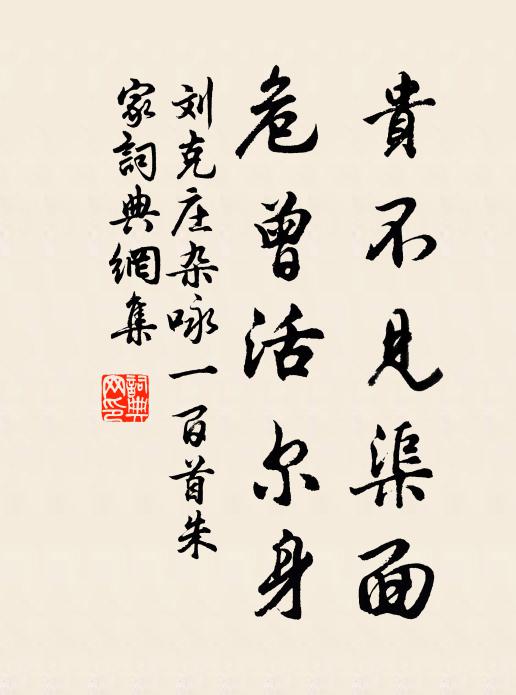 貴不見渠面
危曾活尔身
刘克庄杂咏一百首朱
家詞典網集
詞典
网印